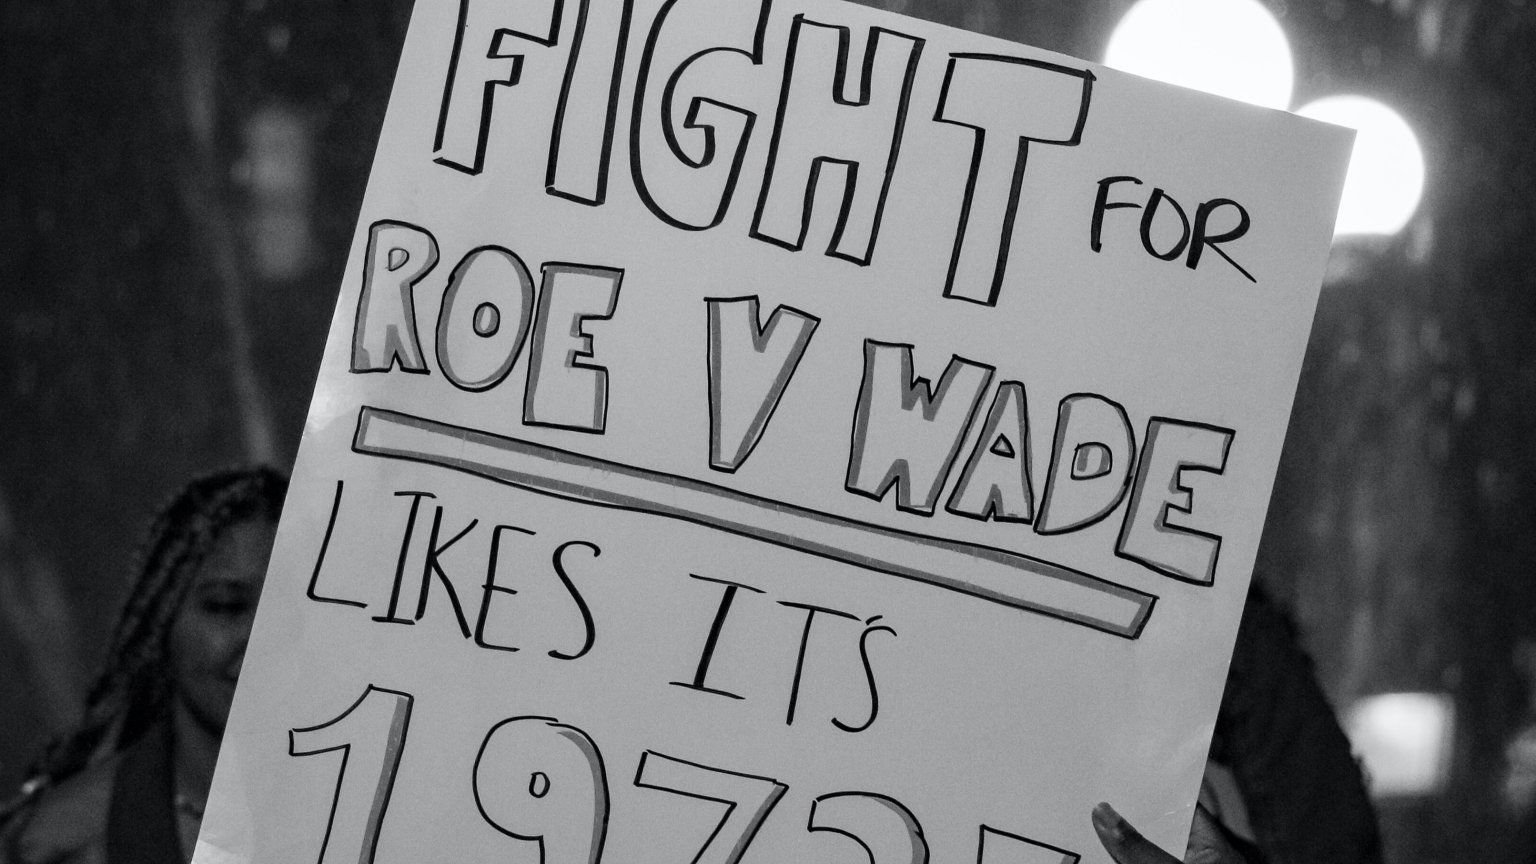 FIGHT FOR
ROE V WADE
LIKES IT'S
197